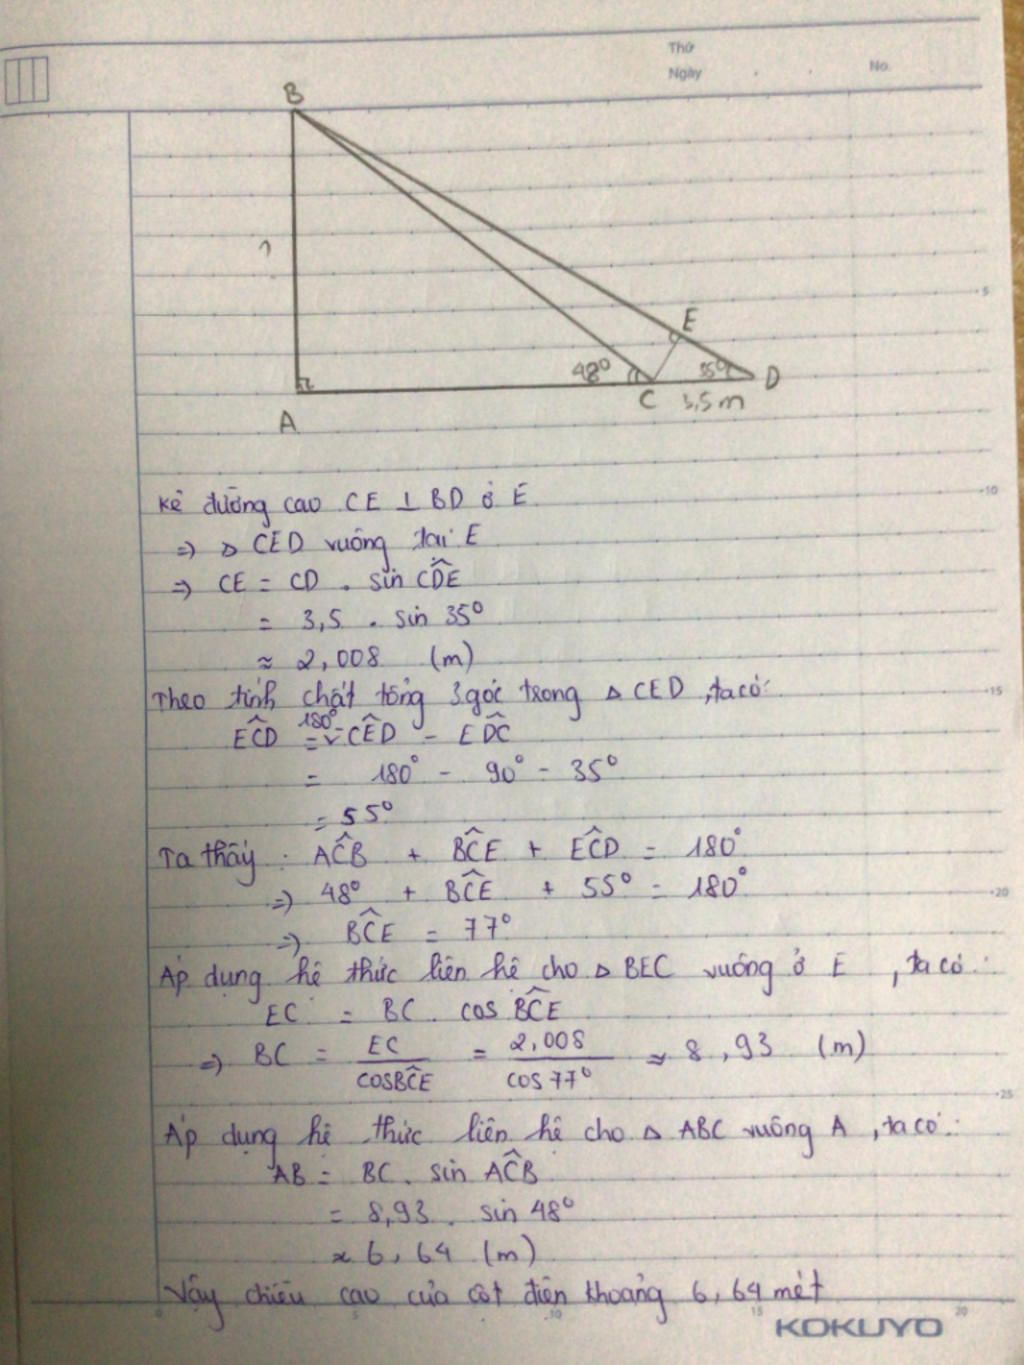 Thứ
Ngày
No.
B
?
E
48°
35°
D
C
3,5 m
A
5
Kẻ đường cao CE ⊥ BD ở E
10
⇒ △ CED vuông tại E
⇒ CE = CD . sin CDE^
= 3,5 . sin 35°
≈ 2,008 (m)
Theo tính chất tổng 3 góc trong △ CED, ta có:
15
ECD^ = 180° - CED^ - EDC^
= 180° - 90° - 35°
= 55°
Ta thấy : ACB^ + BCE^ + ECD^ = 180°
⇒ 48° + BCE^ + 55° = 180°
20
⇒ BCE^ = 77°
Áp dụng hệ thức liên hệ cho △ BEC vuông ở E , ta có :
EC = BC . cos BCE^
⇒ BC = EC / cosBCE^ = 2,008 / cos 77° ≈ 8,93 (m)
25
Áp dụng hệ thức liên hệ cho △ ABC vuông A , ta có :
AB = BC . sin ACB^
= 8,93 . sin 48°
≈ 6,64 (m)
Vậy chiều cao của cột điện khoảng 6,64 mét
0 5 10 15 20
KOKUYO